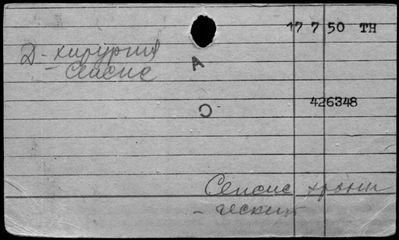 17 7 50 TH
Д-хирургия
- сепсис
А
О
426348
Сепсис хрони
- ческий